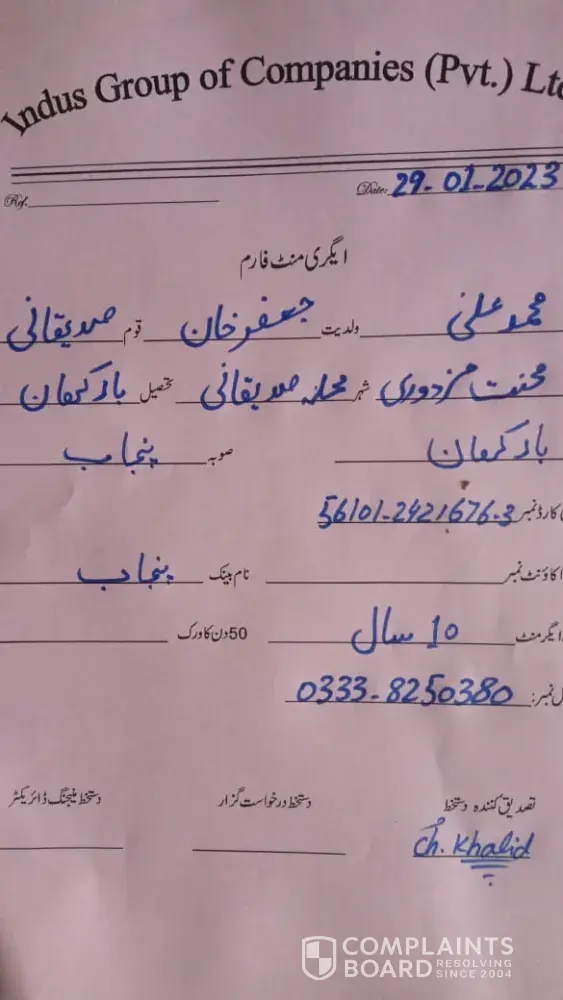 Indus Group of Companies (Pvt.) Ltd
Ref. Date: 29-01-2023
ایگری منٹ فارم
محمد علی ولدیت جعفر خان قوم صدیقانی
محنت مزدوری شہر محلہ صدیقانی تحصیل بارکھان
بارکھان صوبہ پنجاب
کارڈ نمبر 56101-2421676-3
اکاؤنٹ نمبر نام بینک پنجاب
ایگرمنٹ 10 سال 50 دن کا ورک
نمبر: 0333-8250380
تصدیق کنندہ دستخط دستخط درخواست گزار دستخط منیجنگ ڈائریکٹر
Ch. Khalid
COMPLAINTS
BOARD RESOLVING
SINCE 2004